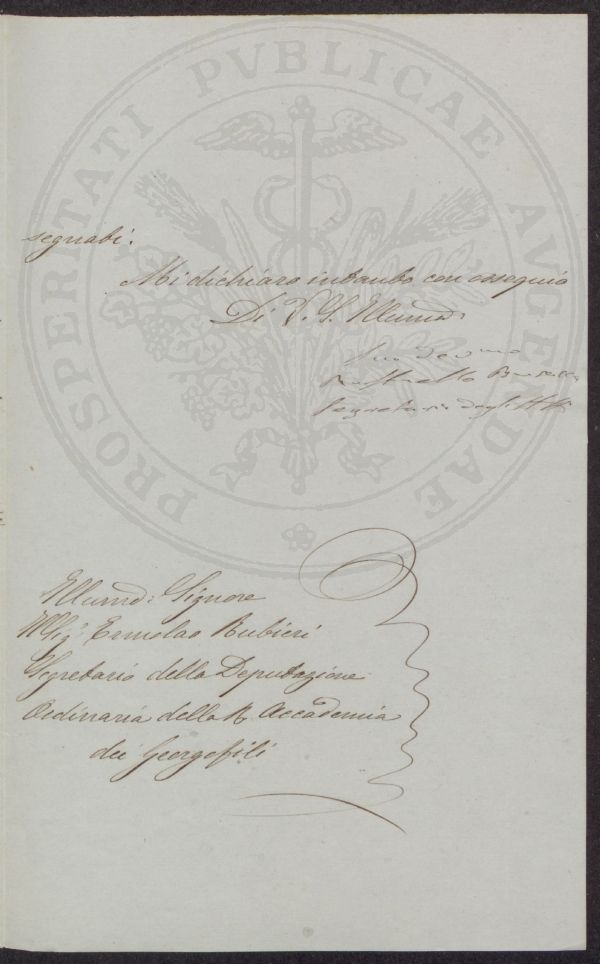 PROSPERITATI PVBLICAE AVGENDAE
segnati.
Mi dichiaro intanto con ossequio
Di V. S. Illuma:
Suo Devmo
Raffaello
Segretario degli Atti
Illumo: Signore
Il Sigr. Ermolao Rubieri
Segretario della Deputazione
Ordinaria della R. Accademia
dei Georgofili